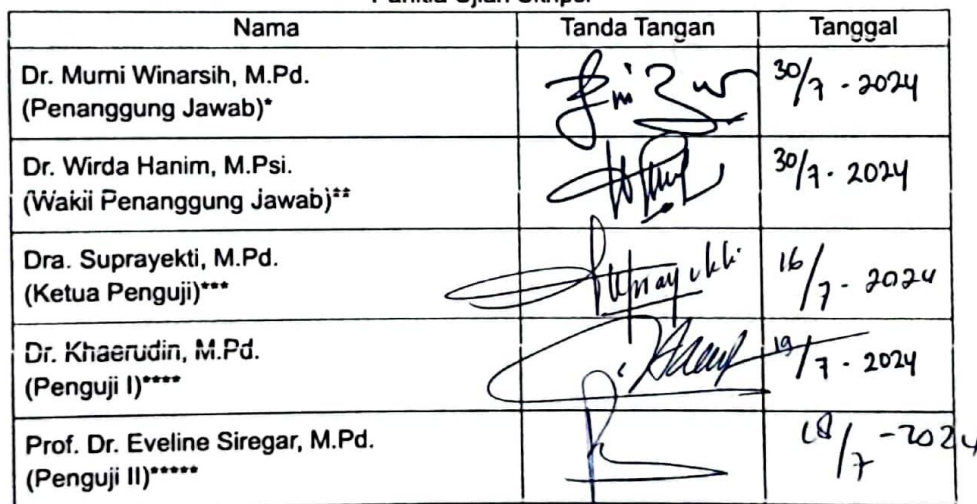 Panitia Ujian Skripsi
Nama Tanda Tangan Tanggal
Dr. Murni Winarsih, M.Pd.
(Penanggung Jawab)*
30/7 - 2024
Dr. Wirda Hanim, M.Psi.
(Wakil Penanggung Jawab)**
30/7 - 2024
Dra. Suprayekti, M.Pd.
(Ketua Penguji)***
Suprayekti
16/7 - 2024
Dr. Khaerudin, M.Pd.
(Penguji I)****
19/7 - 2024
Prof. Dr. Eveline Siregar, M.Pd.
(Penguji II)*****
18/7 - 2024